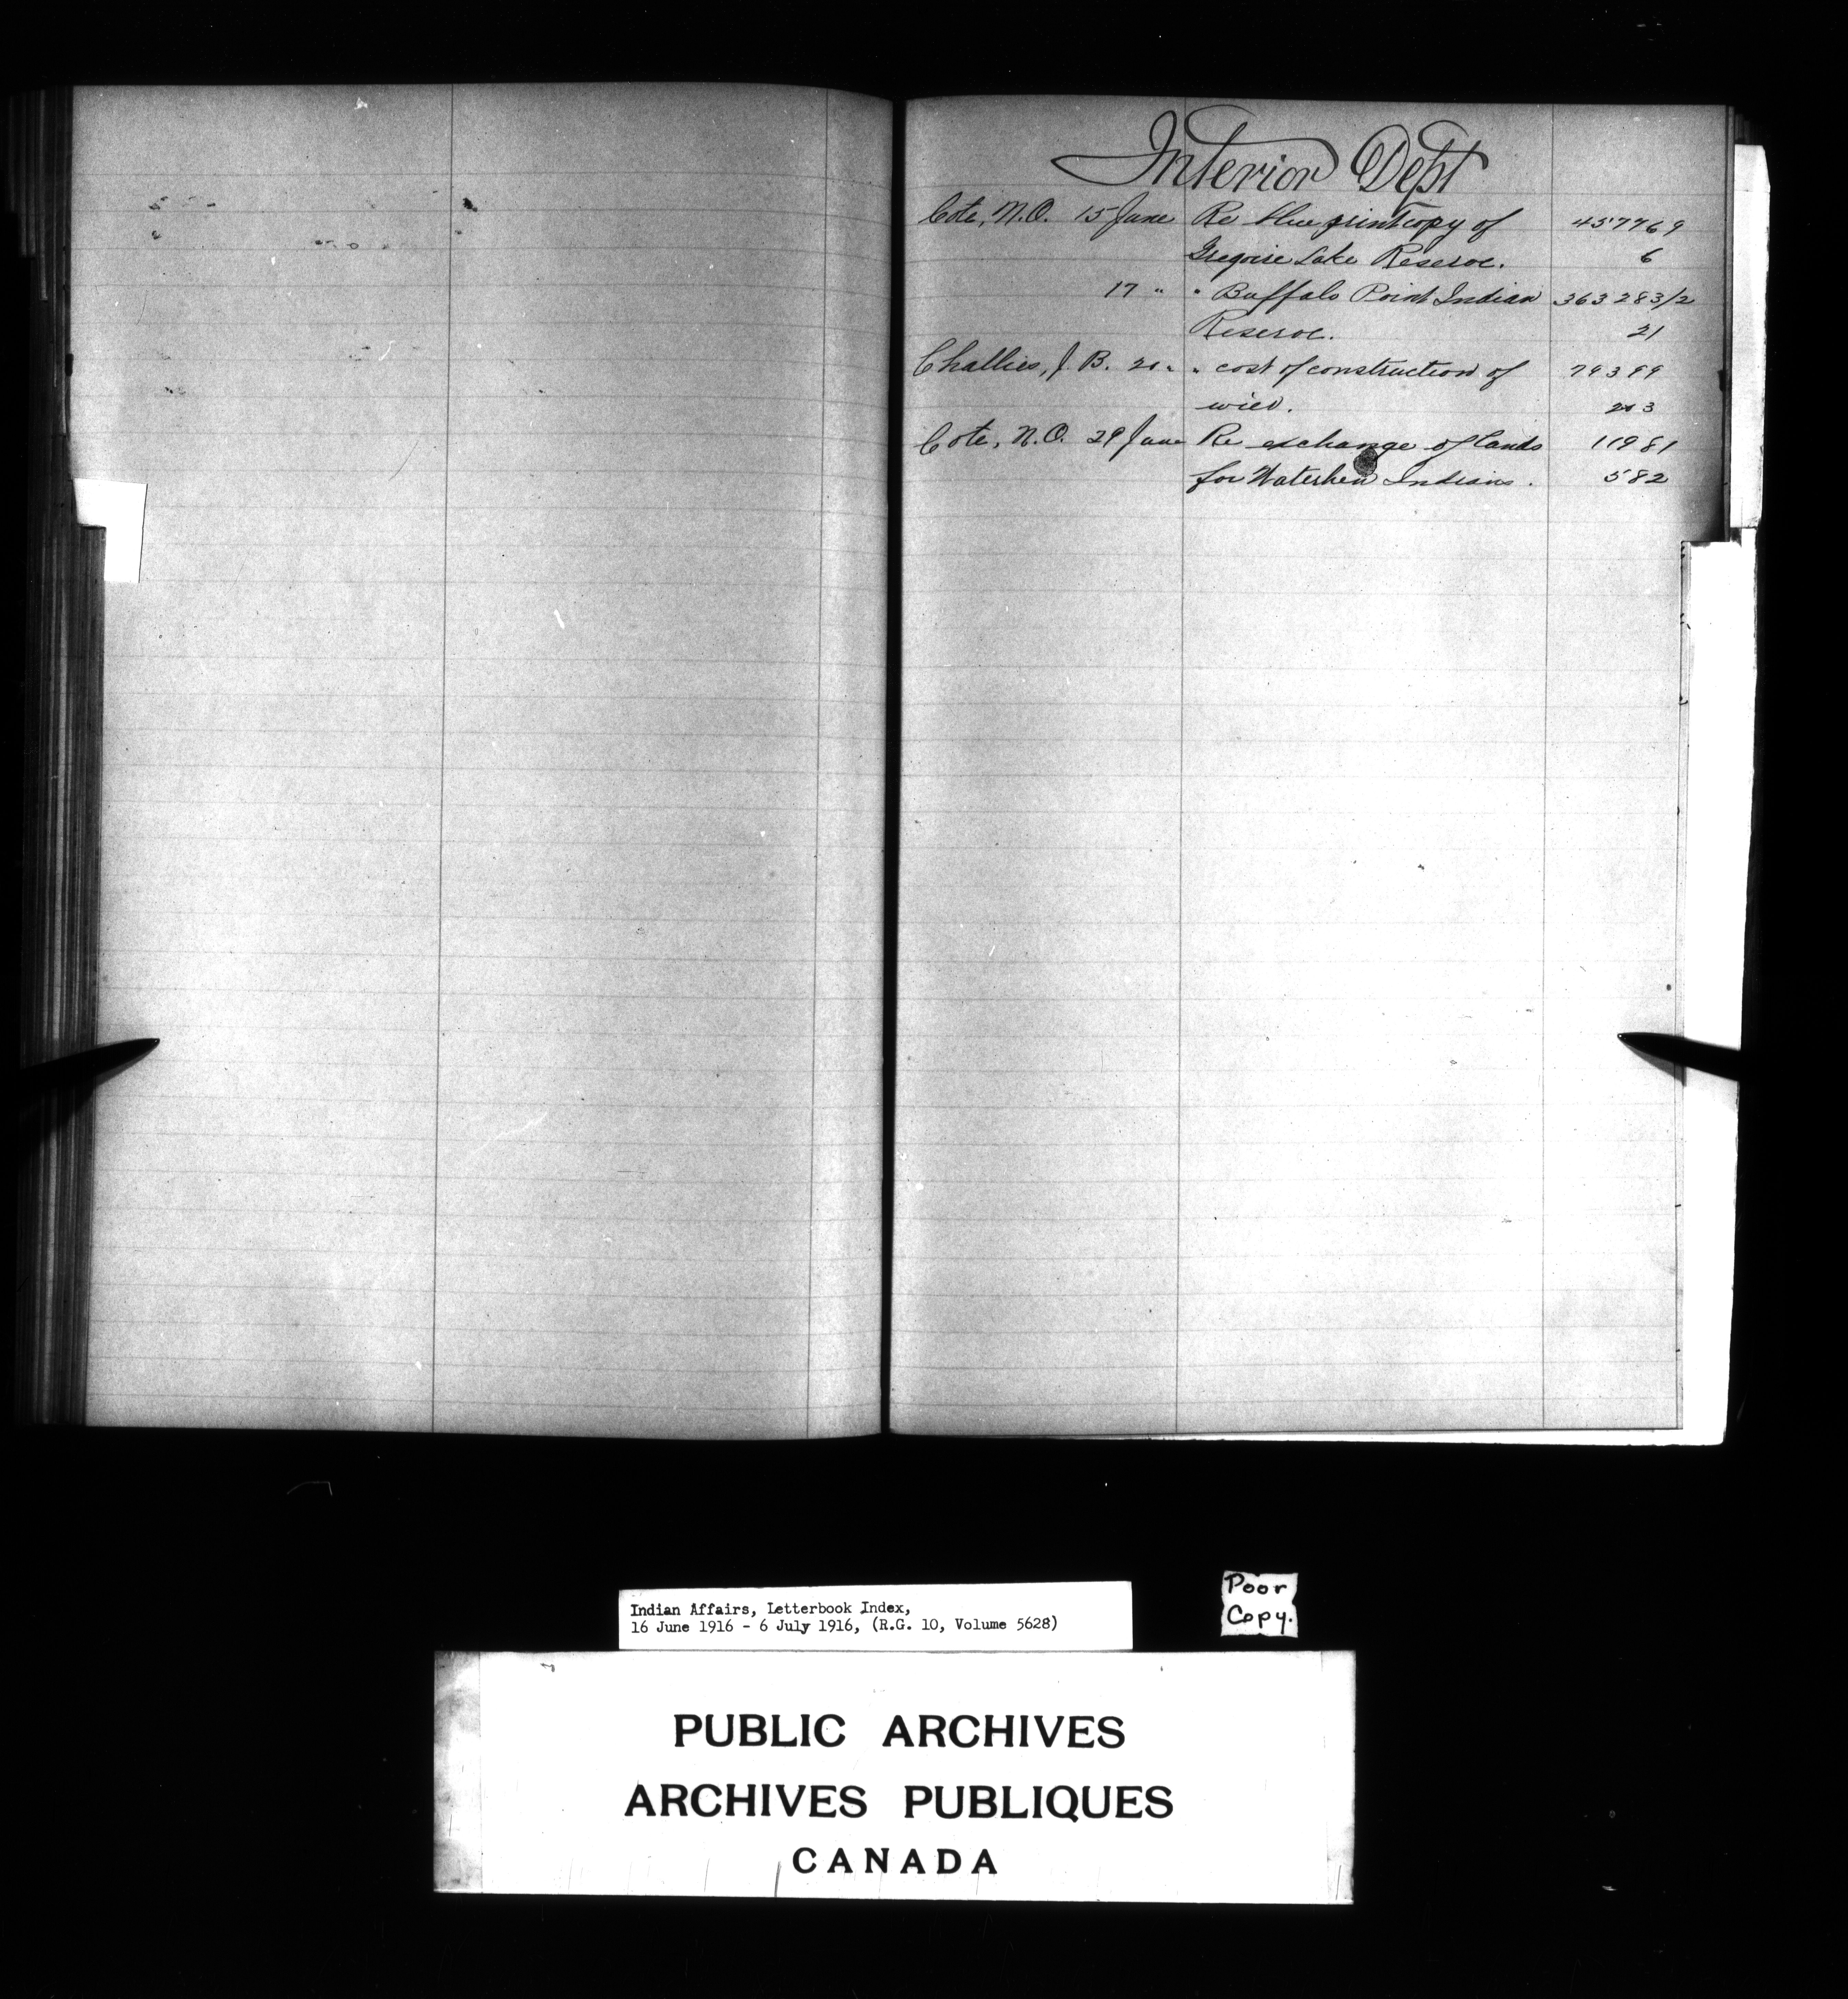 Interior Dept
Cote, N.O. 15 June Re blue print copy of 457769
Gregoire Lake Reserve. 6
17 " " Buffalo Point Indian 363283/2
Reserve. 21
Challies, J. B. 20 " " cost of construction of 79399
wier. 203
Cote, N.O. 29 June Re exchange of lands 11981
for Waterhen Indians. 582
Indian Affairs, Letterbook Index,
16 June 1916 - 6 July 1916, (R.G. 10, Volume 5628)
Poor
Copy.
PUBLIC ARCHIVES
ARCHIVES PUBLIQUES
CANADA